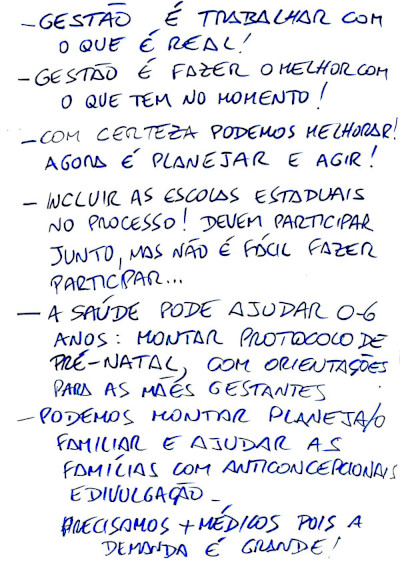 - GESTÃO É TRABALHAR COM
O QUE É REAL!
- GESTÃO É FAZER O MELHOR COM
O QUE TEM NO MOMENTO!
- COM CERTEZA PODEMOS MELHORAR!
AGORA É PLANEJAR E AGIR!
- INCLUIR AS ESCOLAS ESTADUAIS
NO PROCESSO! DEVEM PARTICIPAR
JUNTO, MAS NÃO É FÁCIL FAZER
PARTICPAR...
- A SAÚDE PODE AJUDAR 0-6
ANOS: MONTAR PROTOCOLO DE
PRÉ-NATAL, COM ORIENTAÇÕES
PARA AS MÃES GESTANTES
- PODEMOS MONTAR PLANEJA/O
FAMILIAR E AJUDAR AS
FAMÍLIAS COM ANTICONCEPCIONAIS
E DIVULGAÇÃO -
PRECISAMOS + MÉDICOS POIS A
DEMANDA É GRANDE!